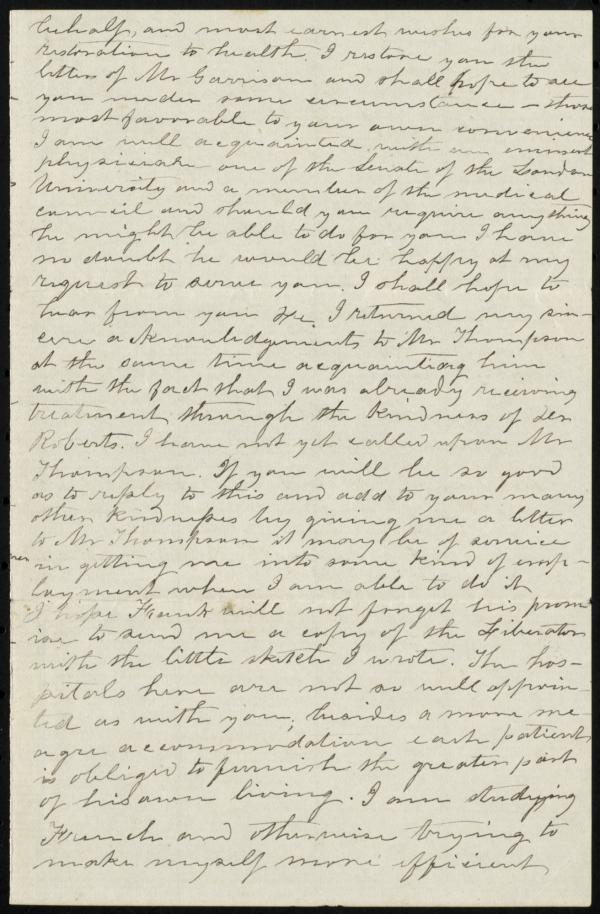 behalf, and most earnest wishes for your
restoration to health. I restore you the
letter of Mr Garrison and shall hope to see
you under some circumstance – those
most favorable to your own convenience
I am well acquainted with an eminent
physician one of the Senate of the London
University and a member of the medical
council and should you require anything
he might be able to do for you I have
no doubt he would be happy at my
request to serve you. I shall hope to
hear from you &c. I returned my sin-
cere acknowledgements to Mr Thompson
at the same time acquainting him
with the fact that I was already receiving
treatment through the kindness of
Roberts. I have not yet called upon Mr
Thompson. If you will be so good
as to reply to this and add to your many
other kindnesses by giving me a letter
to Mr Thompson it may be of service
in getting me into some kind of emp-
loyment when I am able to do it
I hope Frank will not forget his prom
ise to send me a copy of the Liberator
with the little sketch I wrote. The hos-
pitals here are not so well appoin-
ted as with you, besides a more me
agre accommodation each patient
is obliged to furnish the greater part
of his own living. I am studying
French and otherwise trying to
make myself more efficient